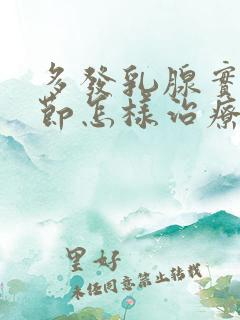 多發乳腺實
節怎樣治療
里好
未经同意禁止转载